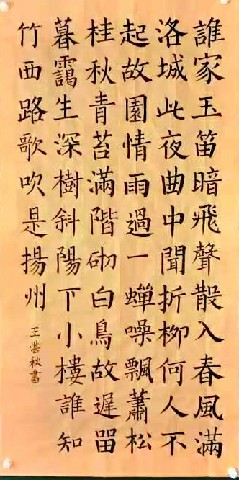 誰家玉笛暗飛聲散入春風滿
洛城此夜曲中聞折柳何人不
起故園情雨過一蟬噪飄蕭松
桂秋青苔滿階砌白鳥故遲留
暮靄生深樹斜陽下小樓誰知
竹西路歌吹是揚州
王秋書